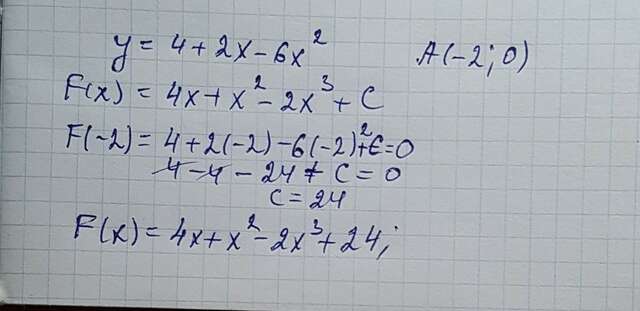 y = 4 + 2x - 6x² A(-2; 0)
F(x) = 4x + x² - 2x³ + C
F(-2) = 4 + 2(-2) - 6(-2)² + C = 0
4 - 4 - 24 + C = 0
C = 24
F(x) = 4x + x² - 2x³ + 24;